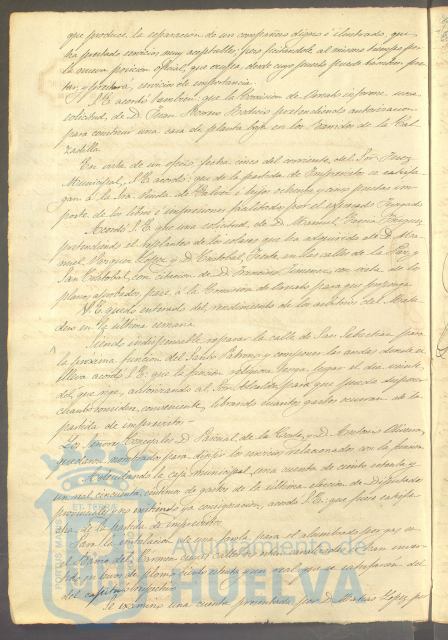 que produce la separacion de un compañero digno é ilustrado, que
ha prestado servicios muy aceptables; pero felicitándole al mismo tiempo por
la nueva posicion oficial, que ocupa, desde cuyo puesto puede tambien, pres-
tar, y prestará, servicios de importancia.
S. E. acordó tambien: que la Comision de Ornato informe una
solicitud, de D. Juan Moreno pretendiendo autorizacion
para construir una casa de planta baja en los Barridos de la Cal-
zadilla.
En vista de un oficio fecha cinco del corriente, del Sor. Juez
Municipal, S. E. acordó: que de la partida de Imprevistos se satisfa-
gan á la Sra. Viuda de é hijos ochenta y cinco pesetas im-
porte de los libros é impresiones facilitados por el expresado Juzgado
Acordó S. E. que una solicitud, de D. Manuel Garcia
pretendiendo el replanteo de los solares que ha adquirido de D. Ma-
nuel Vazquez Lopez y D. Cristobal en las calles de la Paz y
San Cristobal, con citacion de D. Francisco Jimenez, con vista de los
planos aprobados, pase á la Comision de Ornato para que proponga.
S. E. quedó enterado del rendimiento de los arbitrios del Mata-
dero en la última semana.
Siendo indispensable reparar la calle de San Sebastian para
la proxima funcion del Santo Patrono y componer las andas donde se
lleva acordó S. E. que la funcion religiosa tenga lugar el dia veinte
del que rige, autorizando al Sor. Alcalde para que pueda disponer
cuanto considere conveniente, librando cuantos gastos ocurran de la
partida de imprevistos.
Los Señores Concejales D. Pascual de la y D. Antonio Oliveira,
quedaron nombrados para dirigir los servicios relacionados con la funcion
Adeudando la caja municipal, una cuenta de ciento setenta y
un real cincuenta centimos de gastos de la última eleccion de Diputados
provinciales y no existiendo ya consignacion, acordó S. E.: que fuese satisfe-
cha de la partida de imprevistos.
Para la instalacion de una para el alumbrado por gas en
el Barrio del Carmen cuyos se han inver-
tido en tubos de plomo ciento ochenta y un real que se satisfarán del
del capitulo
Se examinó una cuenta presentada por D. Matias Lopez, por
Ayuntamiento de
HUELVA